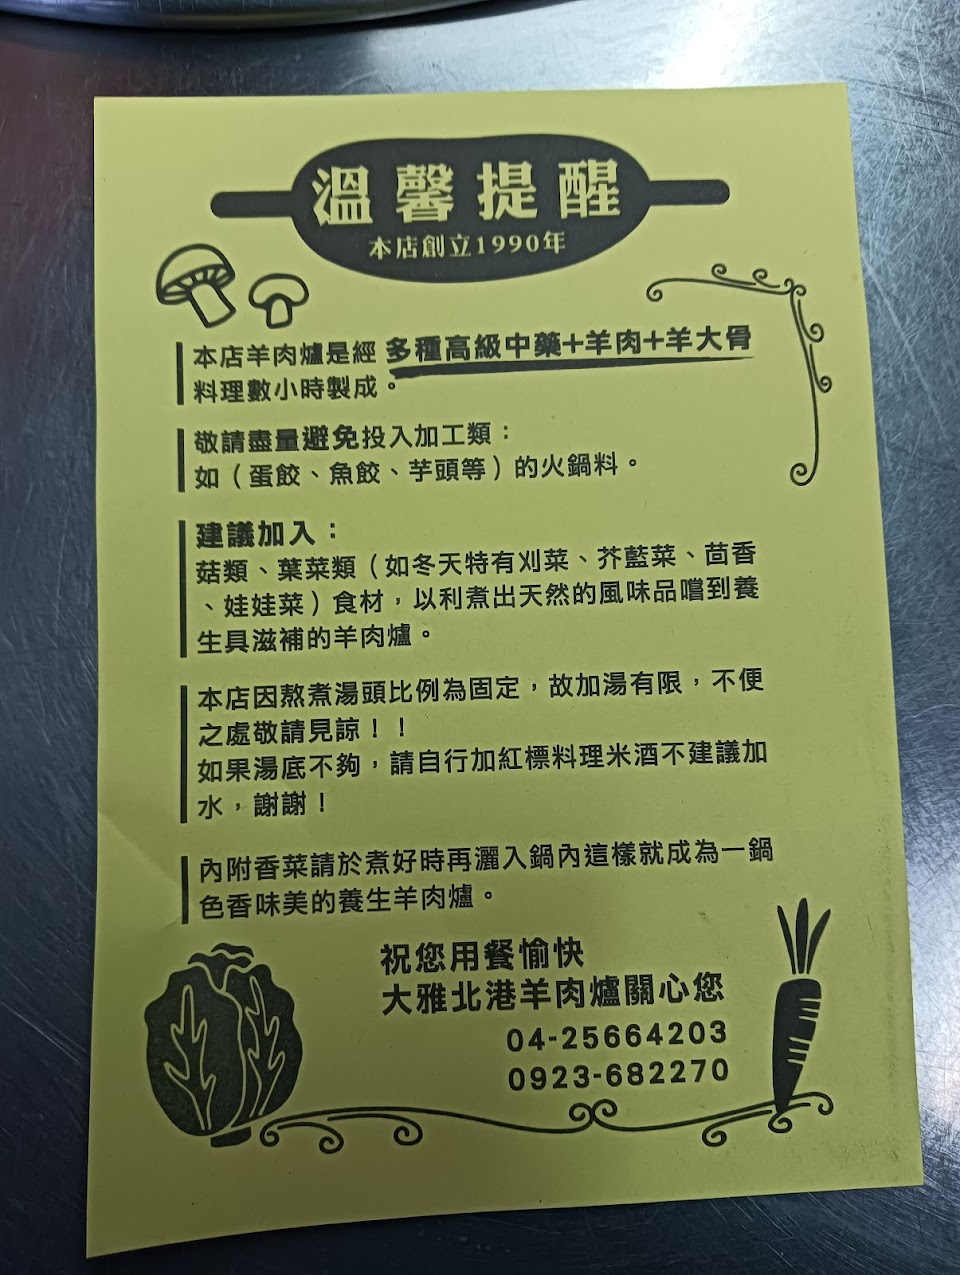 溫馨提醒
本店創立1990年
本店羊肉爐是經 多種高級中藥+羊肉+羊大骨
料理數小時製成。
敬請盡量避免投入加工類：
如（蛋餃、魚餃、芋頭等）的火鍋料。
建議加入：
菇類、葉菜類（如冬天特有刈菜、芥藍菜、茴香
、娃娃菜）食材，以利煮出天然的風味品嚐到養
生具滋補的羊肉爐。
本店因熬煮湯頭比例為固定，故加湯有限，不便
之處敬請見諒！！
如果湯底不夠，請自行加紅標料理米酒不建議加
水，謝謝！
內附香菜請於煮好時再灑入鍋內這樣就成為一鍋
色香味美的養生羊肉爐。
祝您用餐愉快
大雅北港羊肉爐關心您
04-25664203
0923-682270